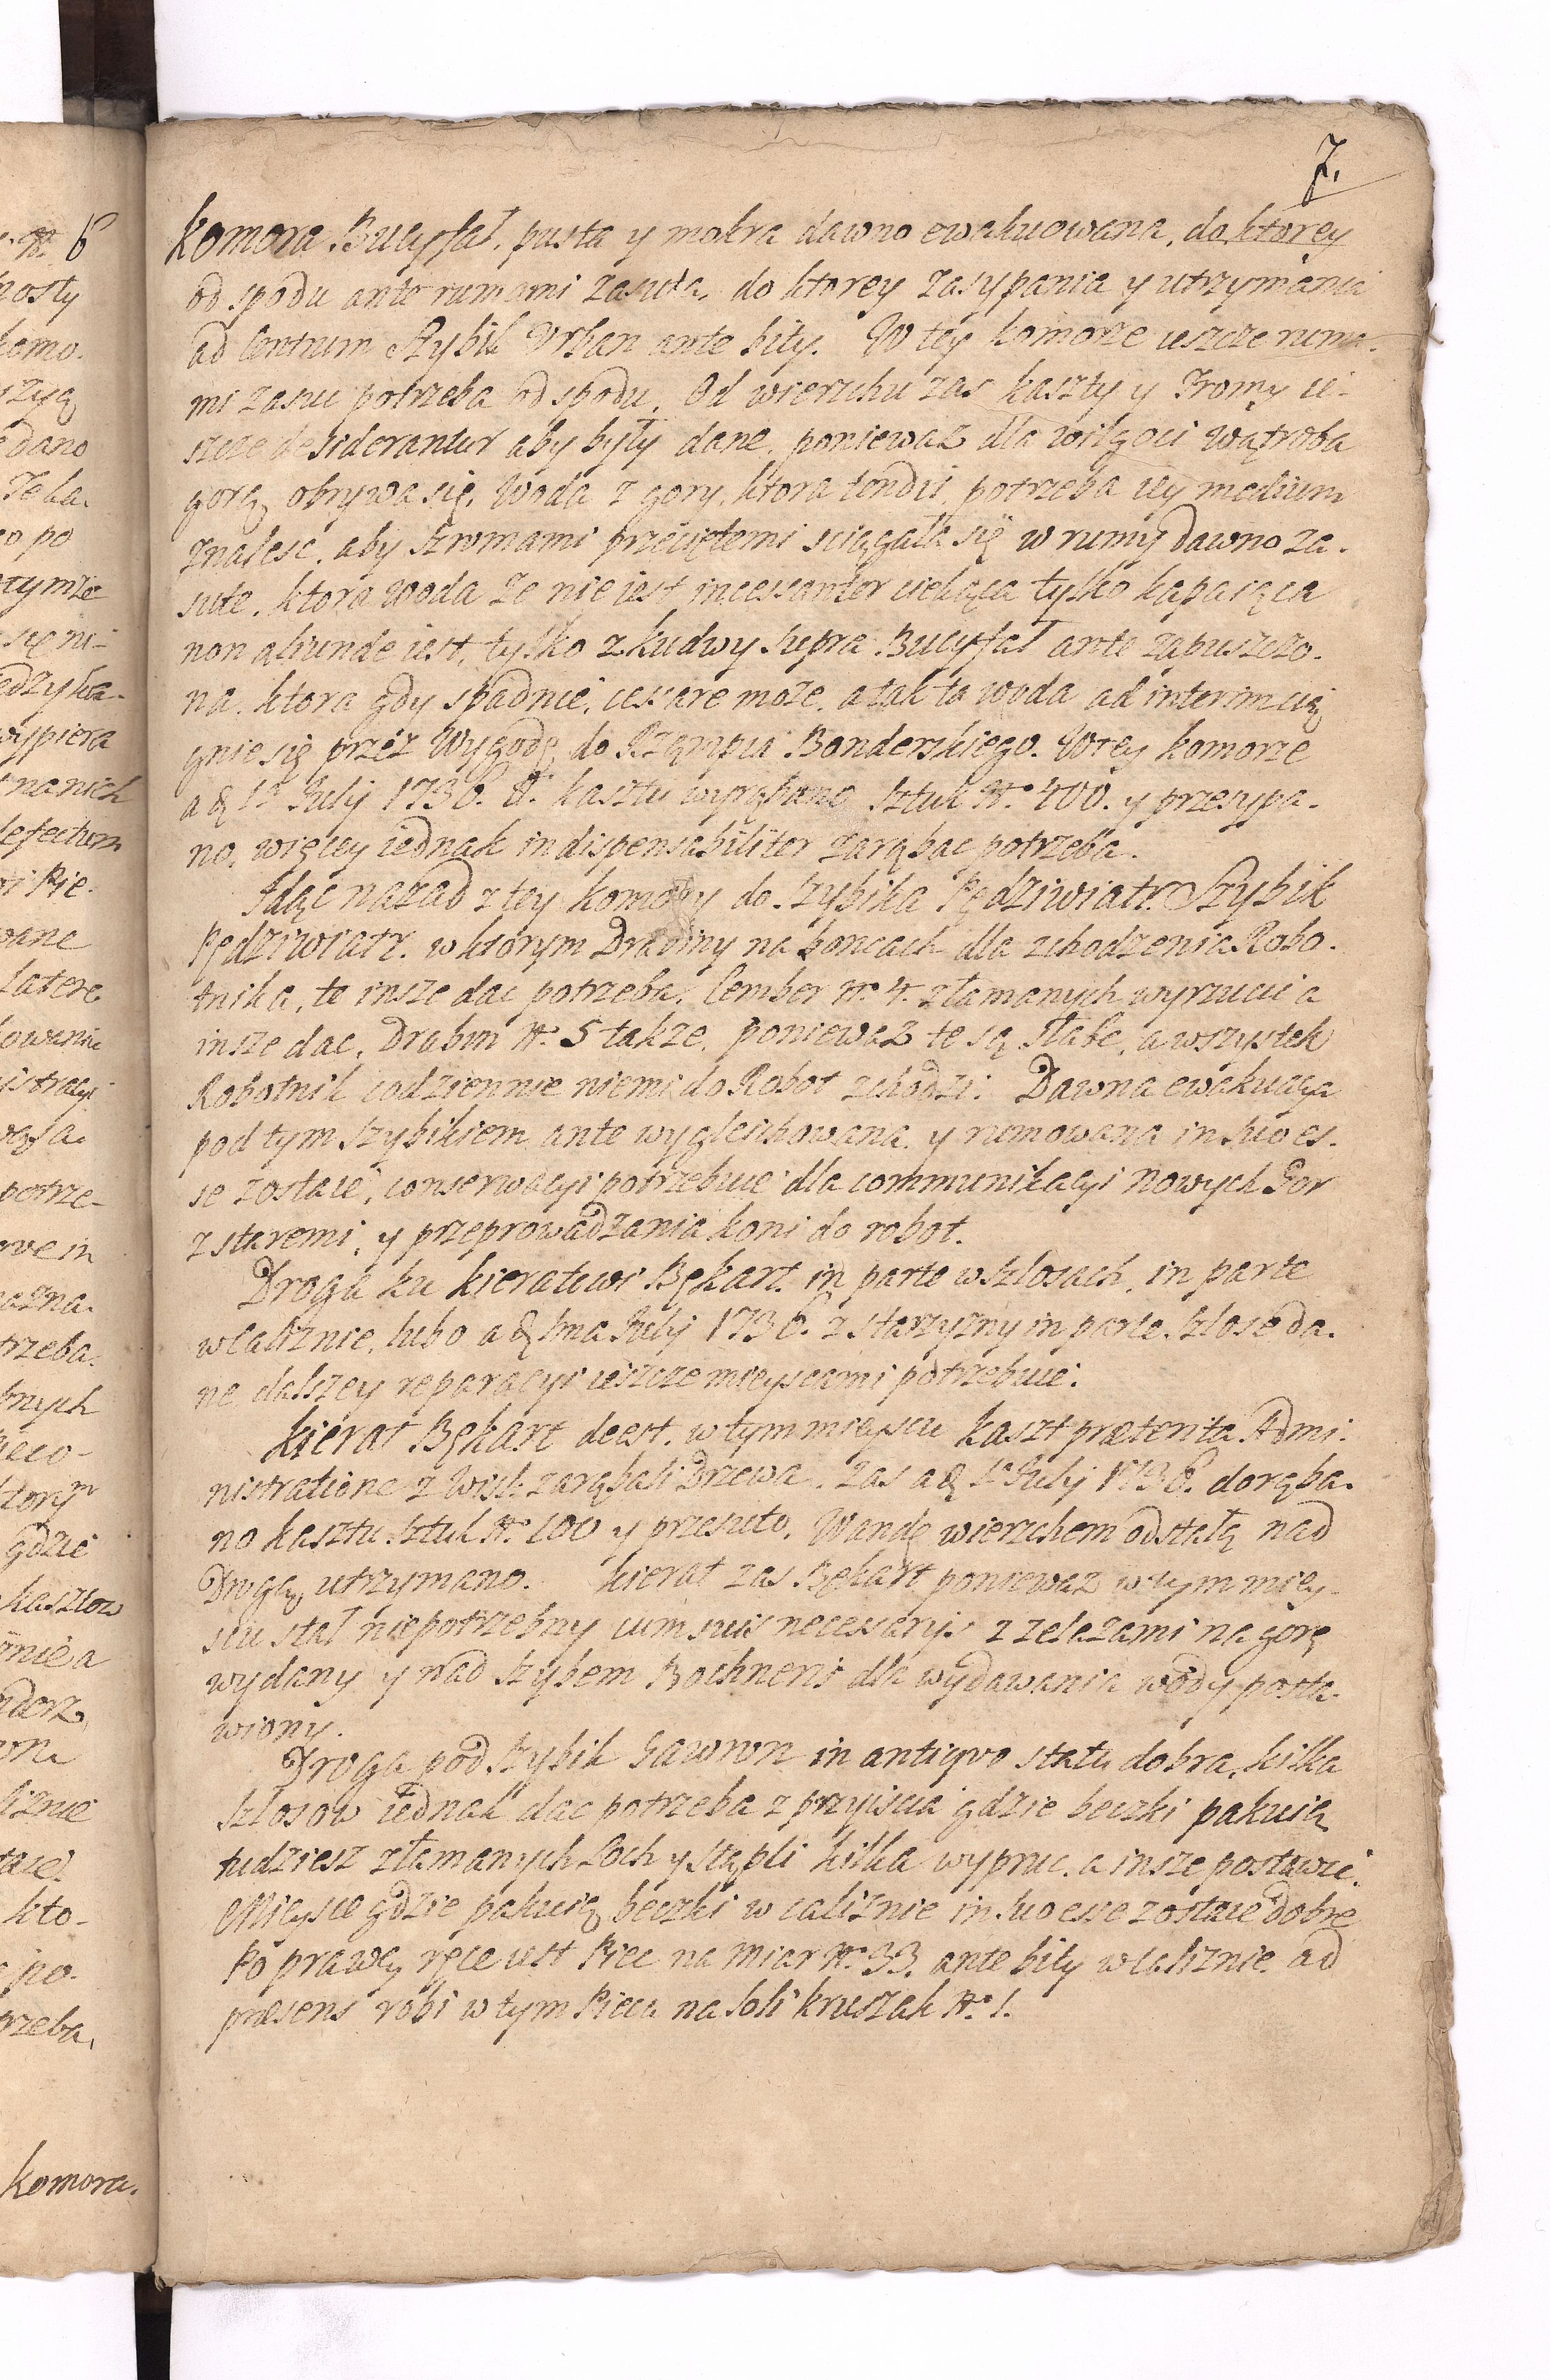 7.
Komora Bucyfał, pusta y mokra dawno ewakuowana, do ktorey
od spodu ante rumami zasuta, do ktorey zasypania y utrzymania
ad Centrum Szybik Urban ante bity. W tey Komorze ieszcze ruma-
mi zasuc potrzeba od spodu. Od wierzchu zas kaszty y Stromy ie-
szcze desiderantur aby były dane, poniewaz dla wilgoci wątroba
gorą obrywa się, Woda z gory, ktora tendit, potrzeba iey medium
znalesc, aby Szromami przeciętemi sciągała się w rumy dawno za-
sute, ktora woda ze nie iest incessanter ciekąca tylko kapaiąca
non aliunde iest, tylko z kudwy supra Bucyfał ante zapuszczo-
na, ktora gdy spadnie, cessare moze, a tak ta woda ad interim cią
gnie się przez Wygodę do Rząmpia Bonderskiego. W tey Komorze
a 1ᵃ Julij 1736. A. kasztu wyrąbano Sztuk Nº 400. y przesypa-
no, więcey iednak indispensabiliter zarąbac potrzeba.
Idąc nazad z tey Komory do Szybika Pędziwiatr. Szybik
Pędziwiatr. w ktorym Drabiny na koncach dla zchodzenia Robo-
tnika, te insze dac potrzeba, Cember Nº 4. złamanych wyrzucic a
insze dac, Drabin Nº 5 takze, poniewaz te są słabe, a wszystek
Robotnik codziennie niemi do Robot zchodzi. Dawna ewakuacya
pod tym Szybikiem ante wygleichowana y rumowana in suo es-
se zostaie, conserwacyi potrzebuie dla communikacyi nowych Gor
z staremi, y przeprowadzania koni do robot.
Droga ku kieratowi Bękart in parte w szlosach, in parte
w caliznie, lubo a 1ma Julij 1736. z starzyzny in parte szlose da-
ne dalszey reparacyi ieszcze mieyscami potrzebuie.
Kierat Bękart deest, w tym mieyscu Kaszt præterita Admi-
nistratione z Wisl: zarąbali Drzewa, zas a 1ª Julij 1736. dorąba-
no kasztu Sztuk Nº 100 y przesuto, Wandę wierzchem odstałą nad
Drogą utrzymano. Kierat zas Bękart poniewaz w tym miey-
scu stał niepotrzebny cum suis necessarijs z zelazami na gorę
wydany y nad Szybem Bochneris dla wydawania wody posta-
wiony.
Droga pod Szybik Gawron in antiquo statu dobra, kilka
szlosow iednak dac potrzeba z przyiscia gdzie beczki pakuią
tudziesz złamanych Loch y Stępli kilka wypruc, a insze postawic.
Mieysce gdzie pakuią beczki w caliznie in suo esse zostaie dobre
Po prawey ręce iest Piec na miar Nº 33. ante bity w caliznie, ad
præsens robi w tym Piecu na Soli kruszak Nº 1.